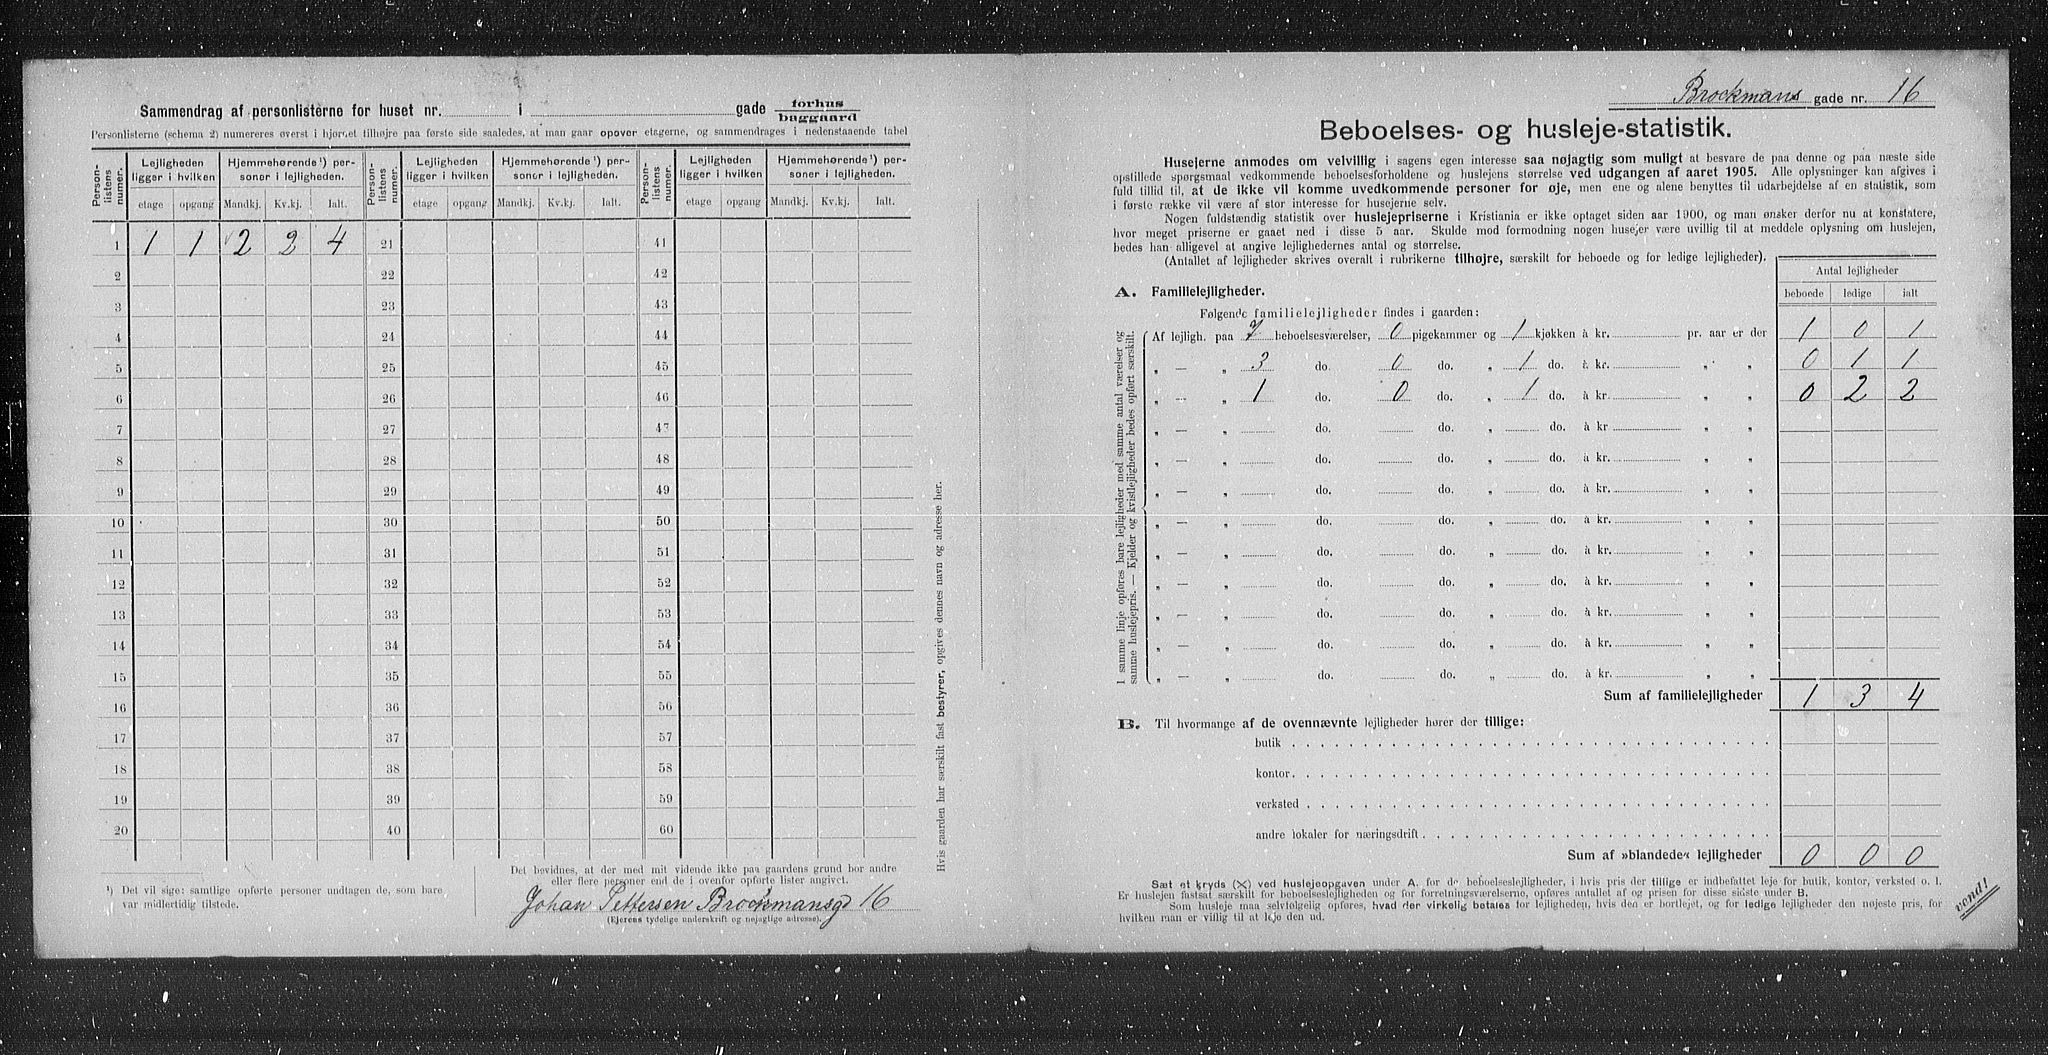 Sammendrag af personlisterne for huset nr. i gade forhus
baggaard
Personlisterne (schema 2) numereres øverst i hjørnet tilhøjre paa første side saaledes, at man gaar opover etagerne, og sammendrages i nedenstaaende tabel
Person-listens numer.
Lejligheden ligger i hvilken
Hjemmehørende¹) personer i lejligheden.
Person-listens numer.
Lejligheden ligger i hvilken
Hjemmehørende¹) personer i lejligheden.
Person-listens numer.
Lejligheden ligger i hvilken
Hjemmehørende¹) personer i lejligheden.
etage opgang Mandkj. Kv.kj. Ialt. etage opgang Mandkj. Kv.kj. Ialt. etage opgang Mandkj. Kv.kj. Ialt.
1 1 1 2 2 4 21 41
2 22 42
3 23 43
4 24 44
5 25 45
6 26 46
7 27 47
8 28 48
9 29 49
10 30 50
11 31 51
12 32 52
13 33 53
14 34 54
15 35 55
16 36 56
17 37 57
18 38 58
19 39 59
20 40 60
¹) Det vil sige: samtlige opførte personer undtagen de, som bare
var midlertidig tilstede.
Det bevidnes, at der med mit vidende ikke paa gaardens grund bor andre
eller flere personer end de i ovenfor opførte lister angivet.
Johan Pettersen Brockmansgd 16
(Ejerens tydelige underskrift og nøjagtige adresse).
Hvis gaarden har særskilt fast bestyrer, opgives dennes navn og adresse her.
Brockmans gade nr. 16
Beboelses- og husleje-statistik.
Husejerne anmodes om velvillig i sagens egen interesse saa nøjagtig som muligt at besvare de paa denne og paa næste side
opstillede spørgsmaal vedkommende beboelsesforholdene og huslejens størrelse ved udgangen af aaret 1905. Alle oplysninger kan afgives i
fuld tillid til, at de ikke vil komme uvedkommende personer for øje, men ene og alene benyttes til udarbejdelse af en statistik, som
i første række vil være af stor interesse for husejerne selv.
Nogen fuldstændig statistik over huslejepriserne i Kristiania er ikke optaget siden aar 1900, og man ønsker derfor nu at konstatere,
hvor meget priserne er gaaet ned i disse 5 aar. Skulde mod formodning nogen husejer være uvillig til at meddele oplysning om huslejen,
bedes han alligevel at angive lejlighedernes antal og størrelse.
(Antallet af lejligheder skrives overalt i rubrikerne tilhøjre, særskilt for beboede og for ledige lejligheder).
Antal lejligheder
beboede ledige ialt
A. Familielejligheder.
Følgende familielejligheder findes i gaarden:
I samme linje opføres bare lejligheder med samme antal værelser og
samme huslejepris. — Kjelder og kvistlejligheder bedes opført særskilt.
Af lejligh. paa 7 beboelsesværelser, 0 pigekammer og 1 kjøkken à kr. pr. aar er der 1 0 1
„ — „ 3 do. 0 do. „ 1 do. à kr. „ „ 0 1 1
„ — „ 1 do. 0 do. „ 1 do. à kr. „ „ 0 2 2
„ — „ do. do. „ do. à kr. „ „
„ — „ do. do. „ do. à kr. „ „
„ — „ do. do. „ do. à kr. „ „
„ — „ do. do. „ do. à kr. „ „
„ — „ do. do. „ do. à kr. „ „
„ — „ do. do. „ do. à kr. „ „
„ — „ do. do. „ do. à kr. „ „
„ — „ do. do. „ do. à kr. „ „
„ — „ do. do. „ do. à kr. „ „
Sum af familielejligheder 1 3 4
B. Til hvormange af de ovennævnte lejligheder hører der tillige:
butik
kontor
verksted
andre lokaler for næringsdrift
Sum af »blandede« lejligheder 0 0 0
Sæt et kryds (X) ved huslejeopgaven under A. for de beboelseslejligheder, i hvis pris der tillige er indbefattet leje for butik, kontor, verksted o. l.
Er huslejen fastsat særskilt for beboelseslejligheden og for forretningsværelserne, opføres antallet af og prisen for disse sidste under B.
Som husleje maa selvfølgelig opføres, hvad der virkelig betales for lejligheden, hvis den er bortlejet, og for ledige lejligheder den nøjeste pris, for
hvilken man er villig til at leje den ud.
vend!